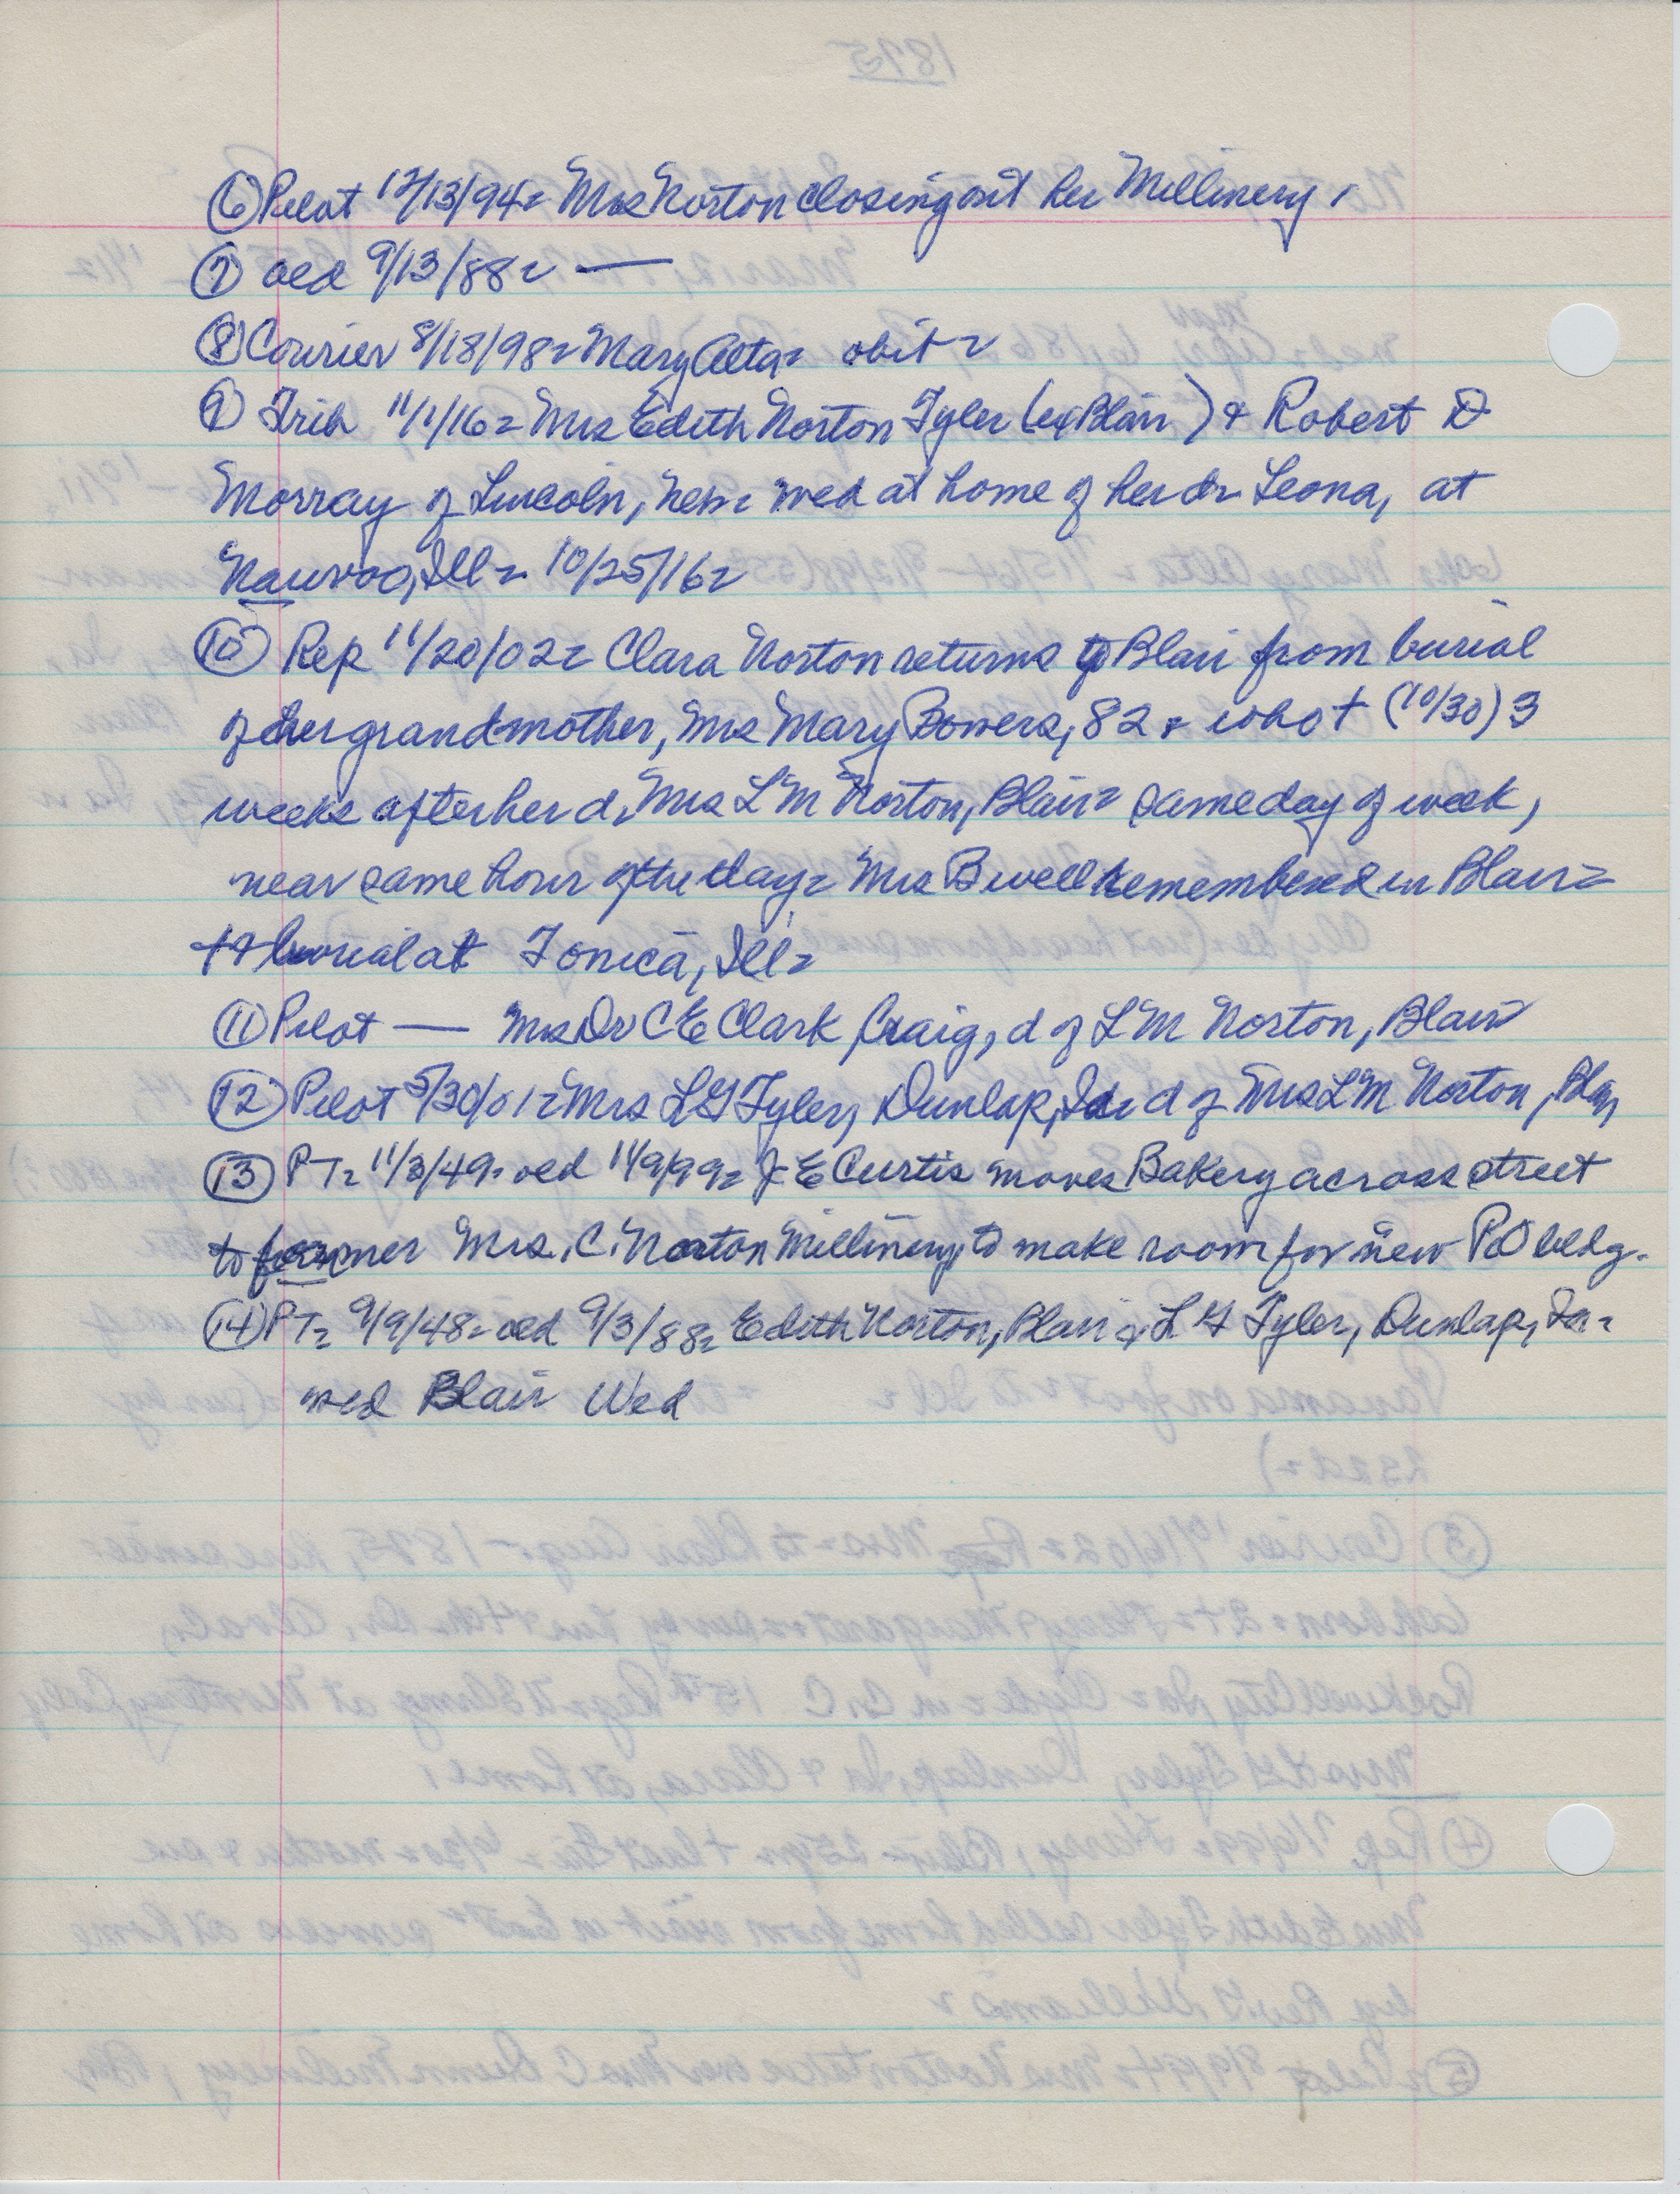 ⑥ Pilot 12/13/94 = Mrs Norton closing out her Millinery.
⑦ old 9/13/88 = —
⑧ Courier 8/18/98 = Mary Alta = obit =
⑨ Trib 11/1/16 = Mrs Edith Norton Tyler (ex Blair) & Robert D
Morray of Lincoln, Neb = wed at home of her dr Leona, at
Nauvoo, Ill = 10/25/16 =
⑩ Rep 11/20/02 = Clara Norton returns to Blair from burial
of her grandmother, Mrs Mary Bowers, 82 & who + (10/30) 3
weeks after her d, Mrs L M Norton, Blair = same day of week,
near same hour of the day = Mrs B well remembered in Blair =
++ burial at Tonica, Ill =
⑪ Pilot — Mrs Dr C E Clark, Craig, d of L M Norton, Blair =
⑫ Pilot 5/30/01 = Mrs L G Tyler, Dunlap, Ia = d of Mrs L M Norton, Blair
⑬ PT = 11/3/49 = old 11/9/99 = J E Curtis moves Bakery across street
to former Mrs. C. Norton Millinery, to make room for new PO bldg.
⑭ PT = 9/9/48 = old 9/3/88 = Edith Norton, Blair & L G Tyler, Dunlap, Ia =
wed Blair Wed